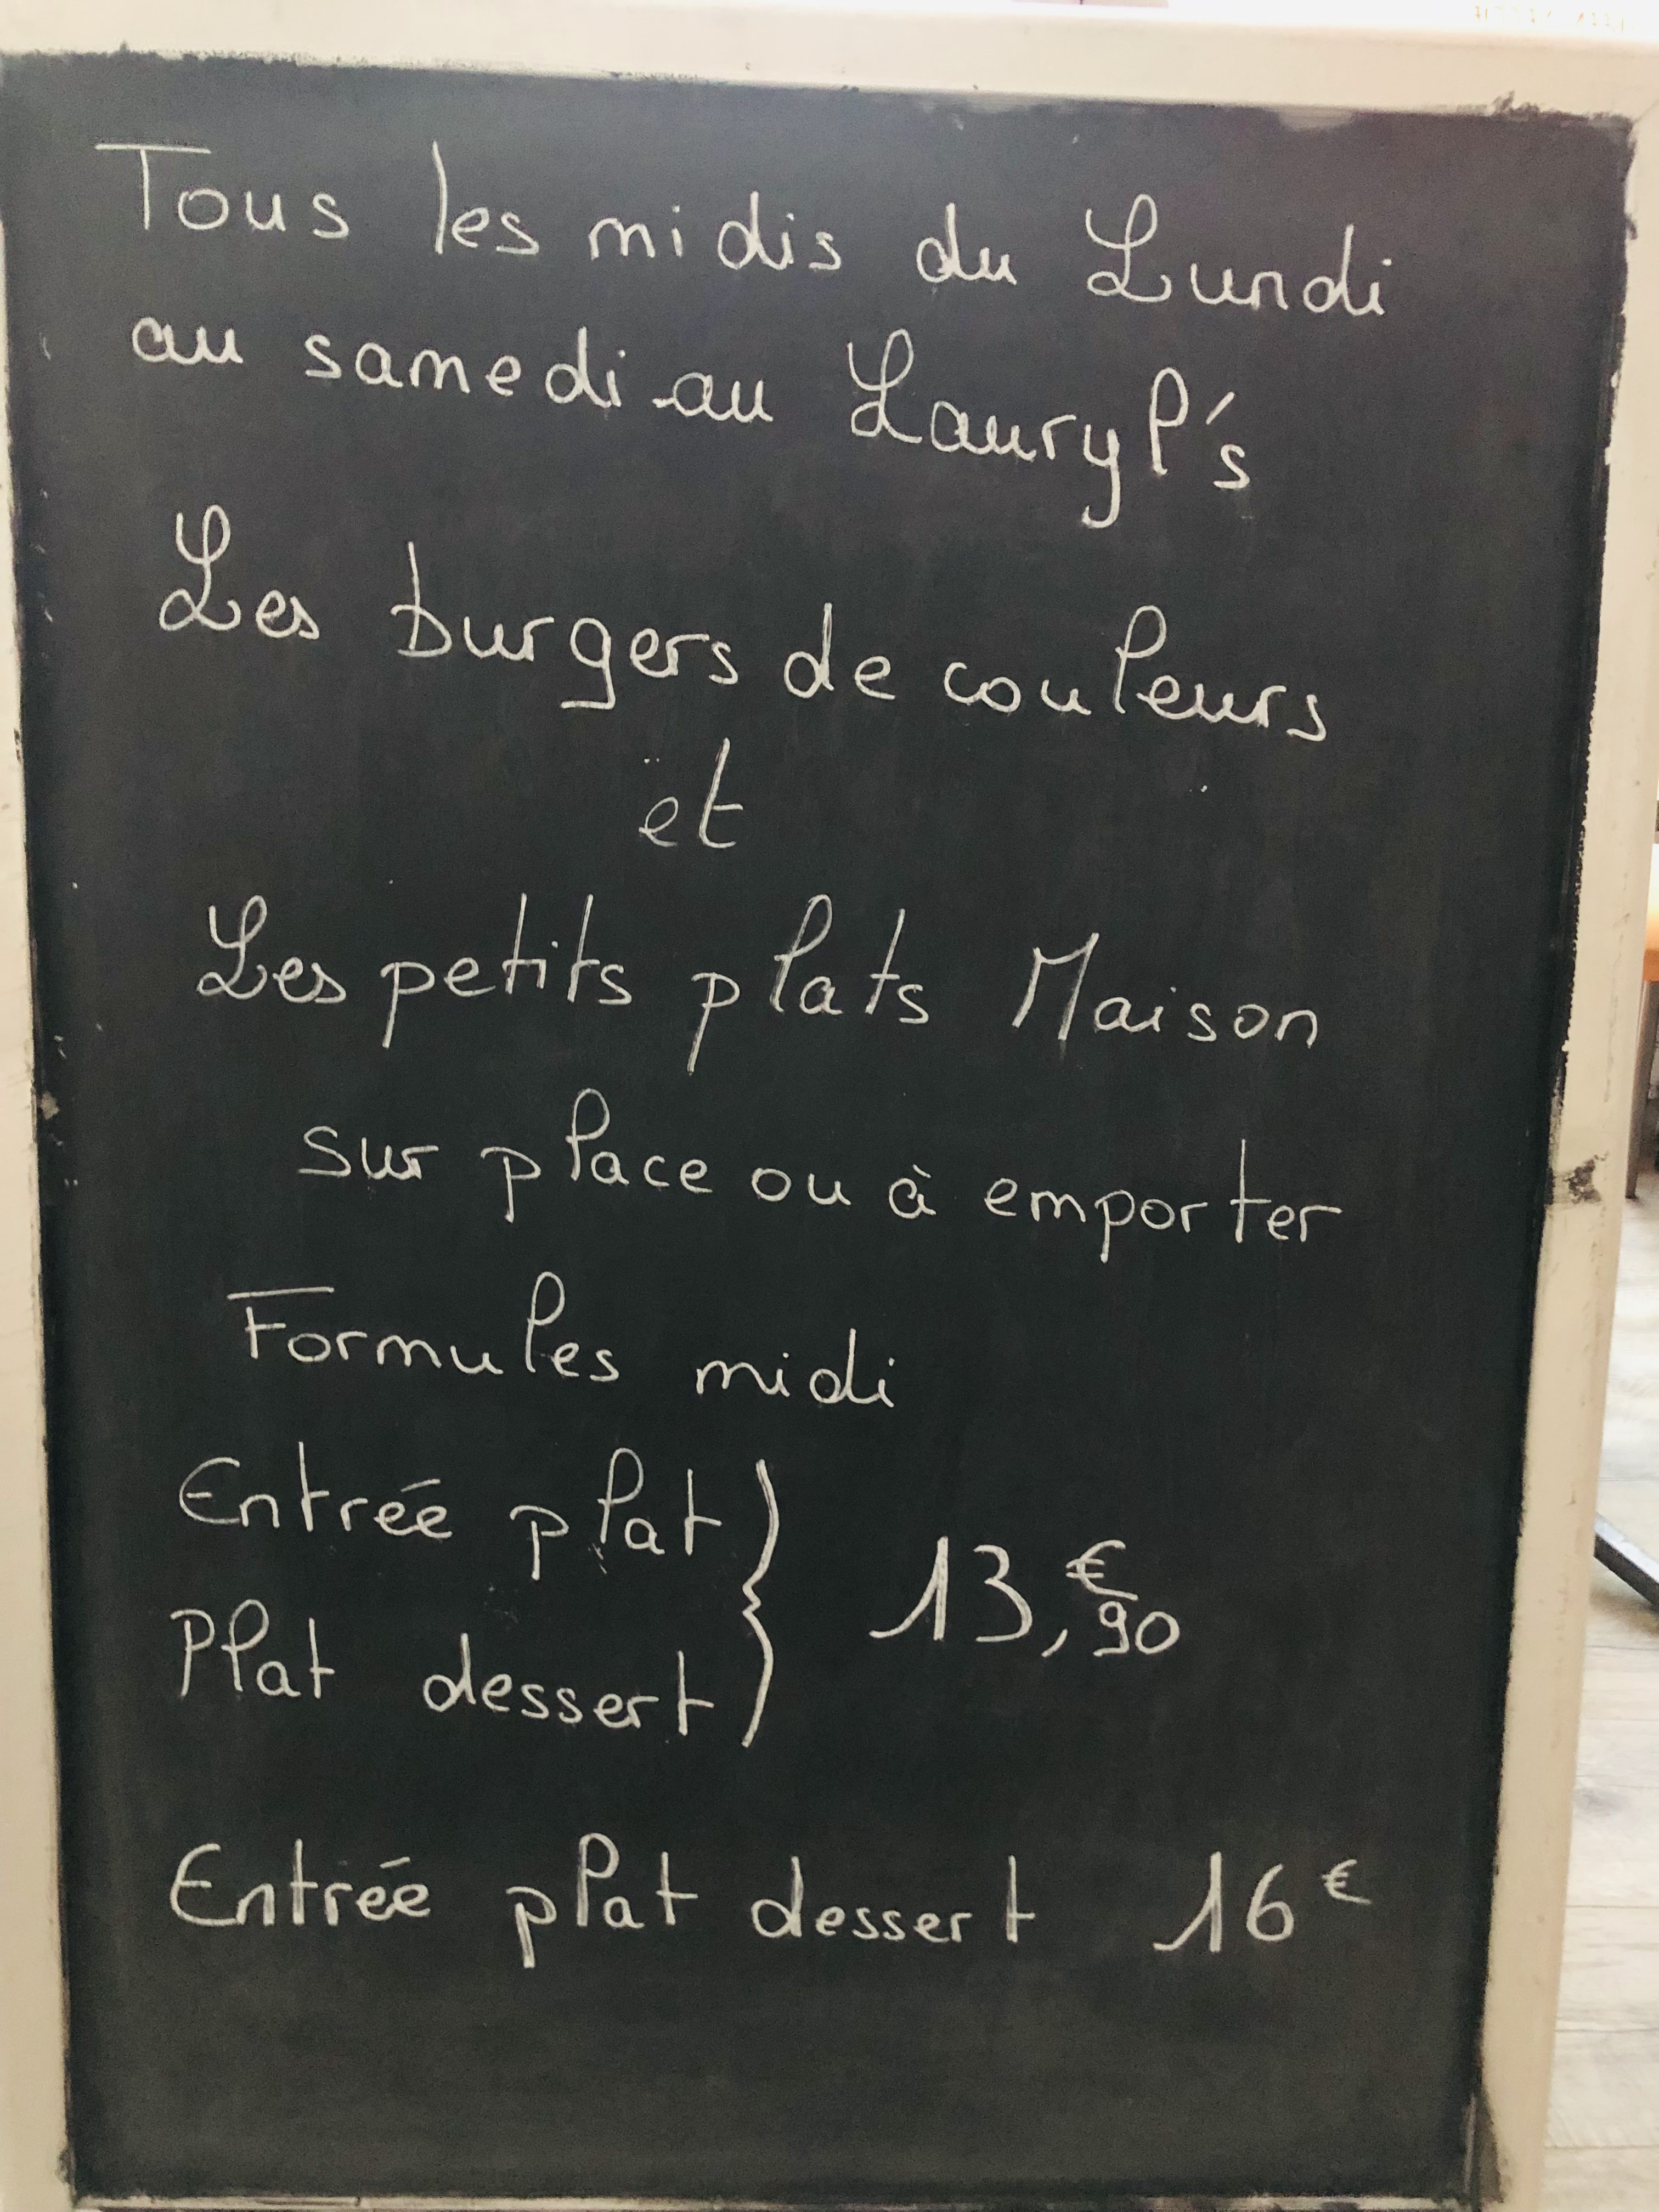 Tous les midis du Lundi
au samedi au Lauryl's
Les burgers de couleurs
et
Les petits plats Maison
sur place ou à emporter
Formules midi
Entrée plat
Plat dessert
13,€90
Entrée plat dessert 16€